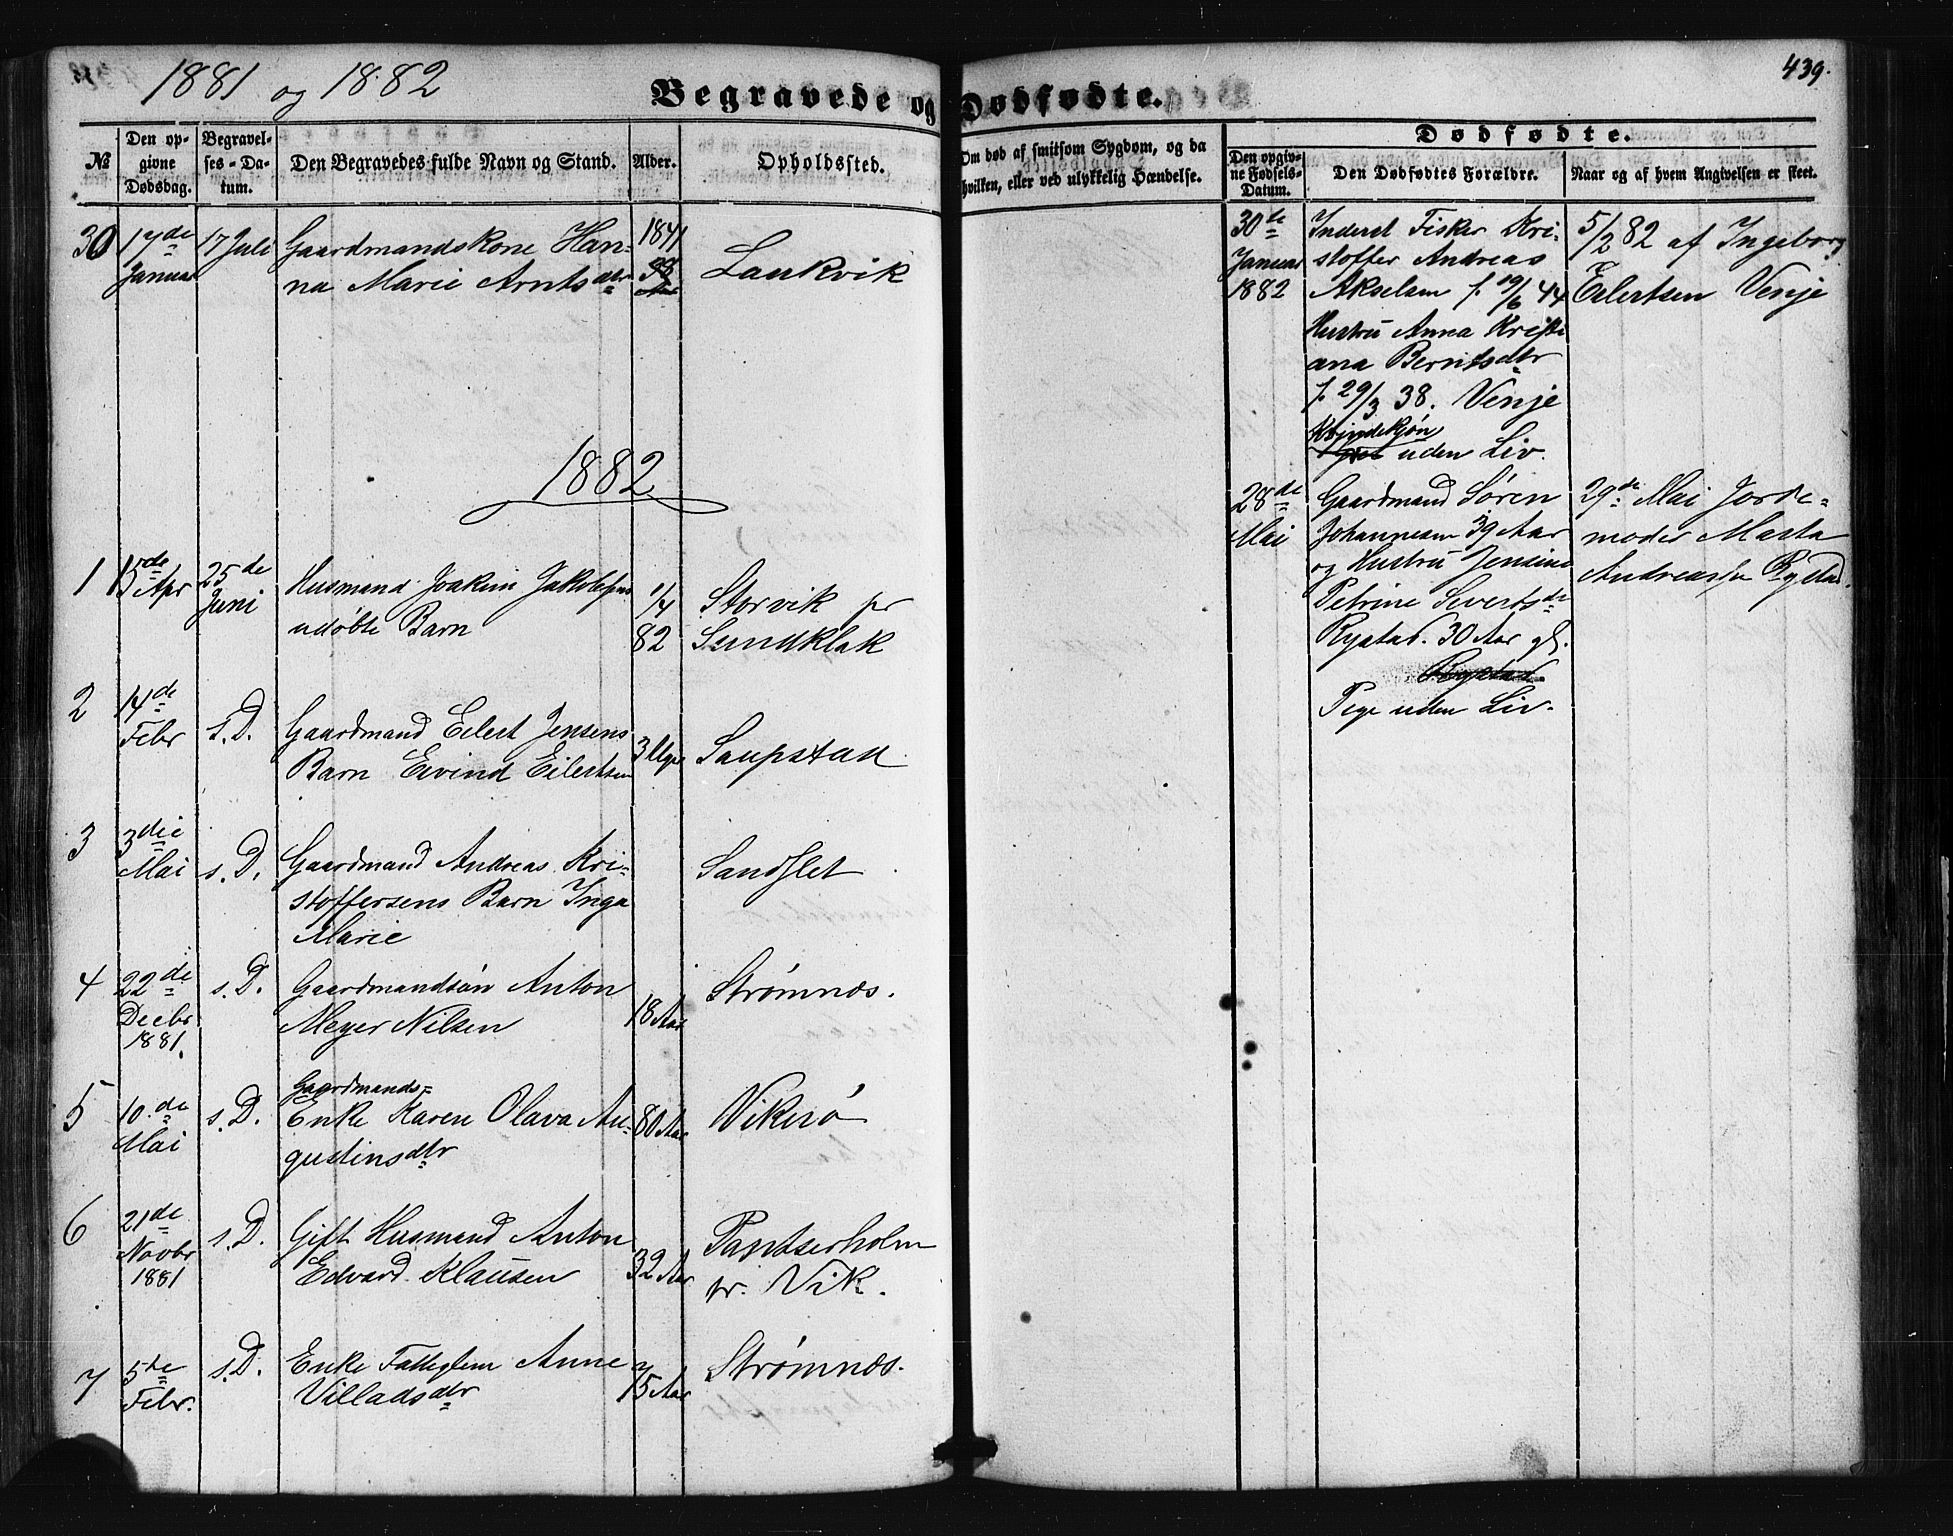 1881 og 1882
Begravede og Dødfødte.
439.
№
Den op-
givne
Dødsdag.
Begravel-
ses-Da-
tum.
Den Begravedes fulde Navn og Stand.
Alder.
Opholdssted.
Om død af smitsom Sygdom, og da
hvilken, eller ved ulykkelig Hændelse.
Dødfødte.
Den opgiv-
ne Fødsels-
Datum.
Den Dødfødtes Forældre.
Naar og af hvem Angivelsen er skeet.
30 17de Januar 17 Juli Gaardmandskone Han-
na Marie Arntsdtr
1841
Laukvik
1882
1 15de Apr 25de Juni Husmand Joakim Jakobsens
udøbte Barn
1/4 82
Storvik pr
Sundklak
2 14de Febr s.D. Gaardmand Eilert Jensens
Barn Eivind Eilertsen
3 Uger
Saupstad
3 3die Mai s.D. Gaardmand Andreas Kri-
stoffersens Barn Inga
Marie
Sandslet
4 22de Decbr 1881. s.D. Gaardmandsøn Anton
Meyer Nilsen
18 Aar
Strømnæs.
5 10de Mai s.D. Gaardmands-
Enke Karen Olava Au-
gustinsdtr
80 Aar
Vikerø
6 21de Novbr 1881 s.D. Gift Husmand Anton
Edvard Klausen
32 Aar
pr. Vik.
7 5de Febr. s.D. Enke Fattiglem Anne
Villadsdtr
75 Aar
Strømnæs.
30de
Januar
1882
Inderst Fisker Kri-
stoffer Andreas
Akselsen f. 19/6 44
Hustru Anna Kristi
ana Berntsdtr
f. 29/3 38. Venje
Kvindekjøn
uden Liv.
5/2 82 af Ingeborg
Eilertsen Venje
28de
Mai
Gaardmand Søren
Johannesen 39 Aar
og Hustru Jensine
Petrine Sivertsdtr
Rystad. 30 Aar gl.
Rystad.
Pige uden Liv.
29de Mai Jorde-
moder Marta
Rystad.